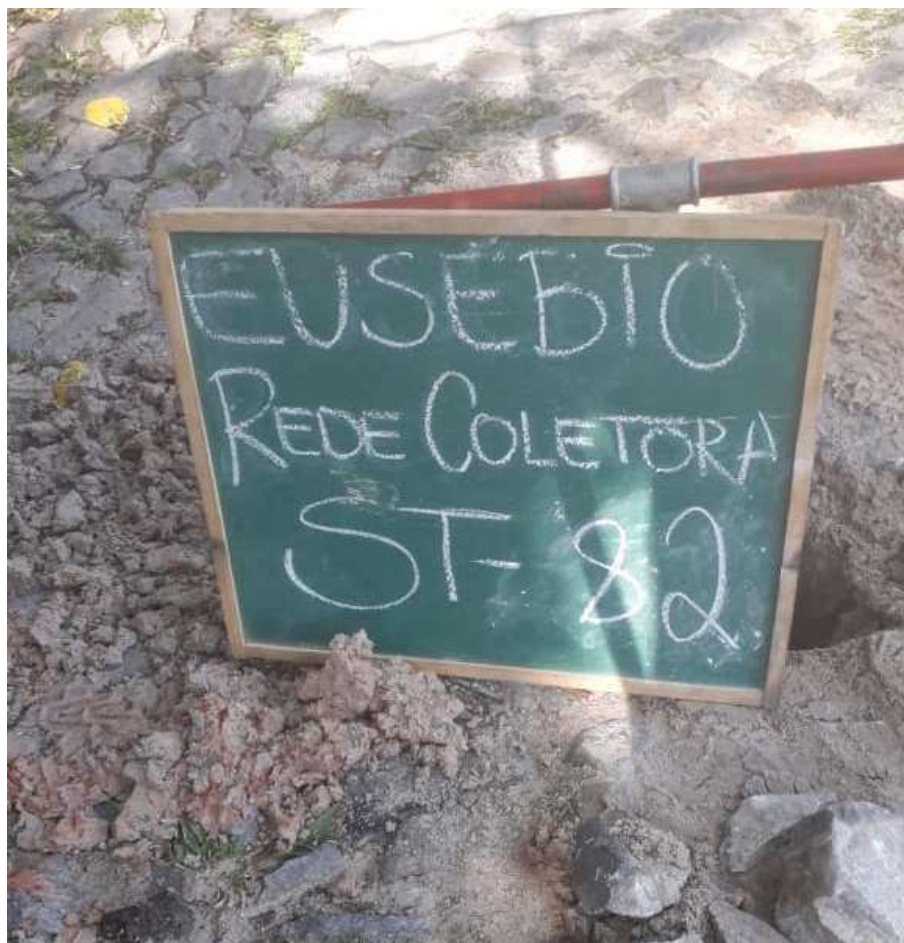 EUSÉBIO
REDE COLETORA
ST-82